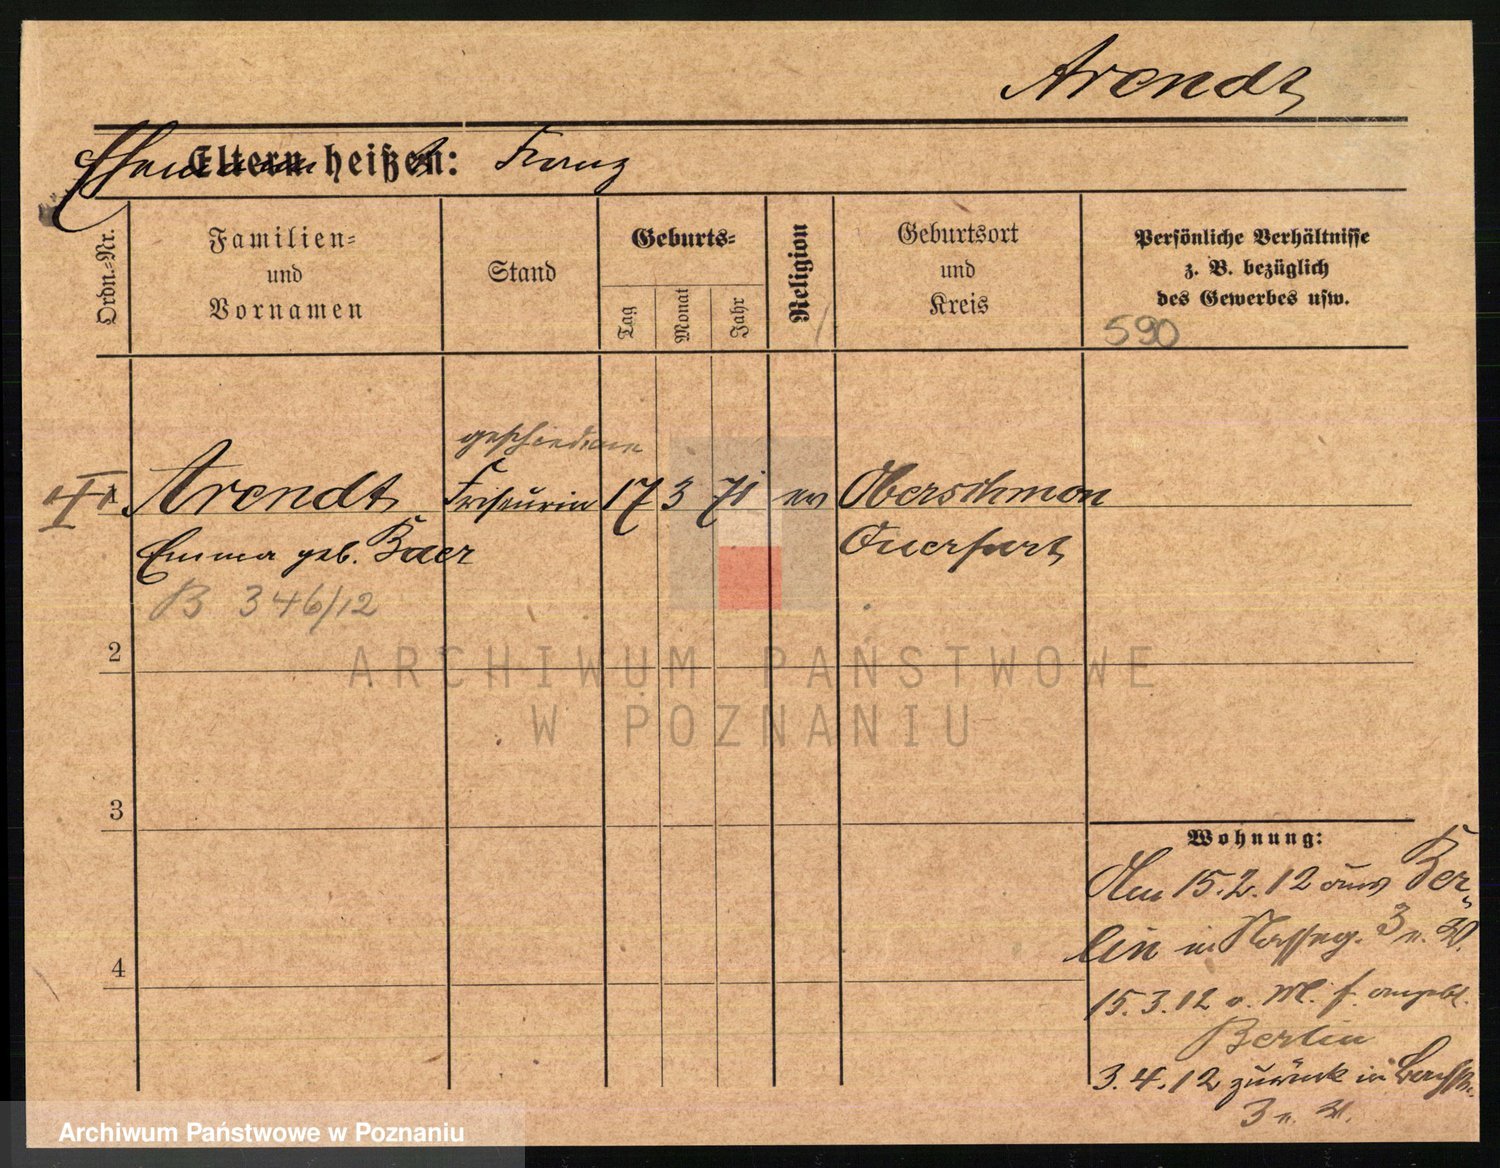 Arendt
Ehemann
Eltern heißen: Franz
Ordn.=Nr.
Familien=
und
Vornamen
Stand
Geburts=
Tag
Monat
Jahr
Religion
Geburtsort
und
Kreis
Persönliche Verhältnisse
z. B. bezüglich
des Gewerbes usw.
590
geschiedene
I Arendt Friseurin 17 3 71 ev Oberschmon
Emma geb. Baer Querfurt
B 346/12
2
ARCHIWUM PAŃSTWOWE
W POZNANIU
3
Wohnung:
Am 15.2.12 aus Ber-
lin in 3
4
15.3.12
Berlin
3.4.12 zurück in
3
Archiwum Państwowe w Poznaniu